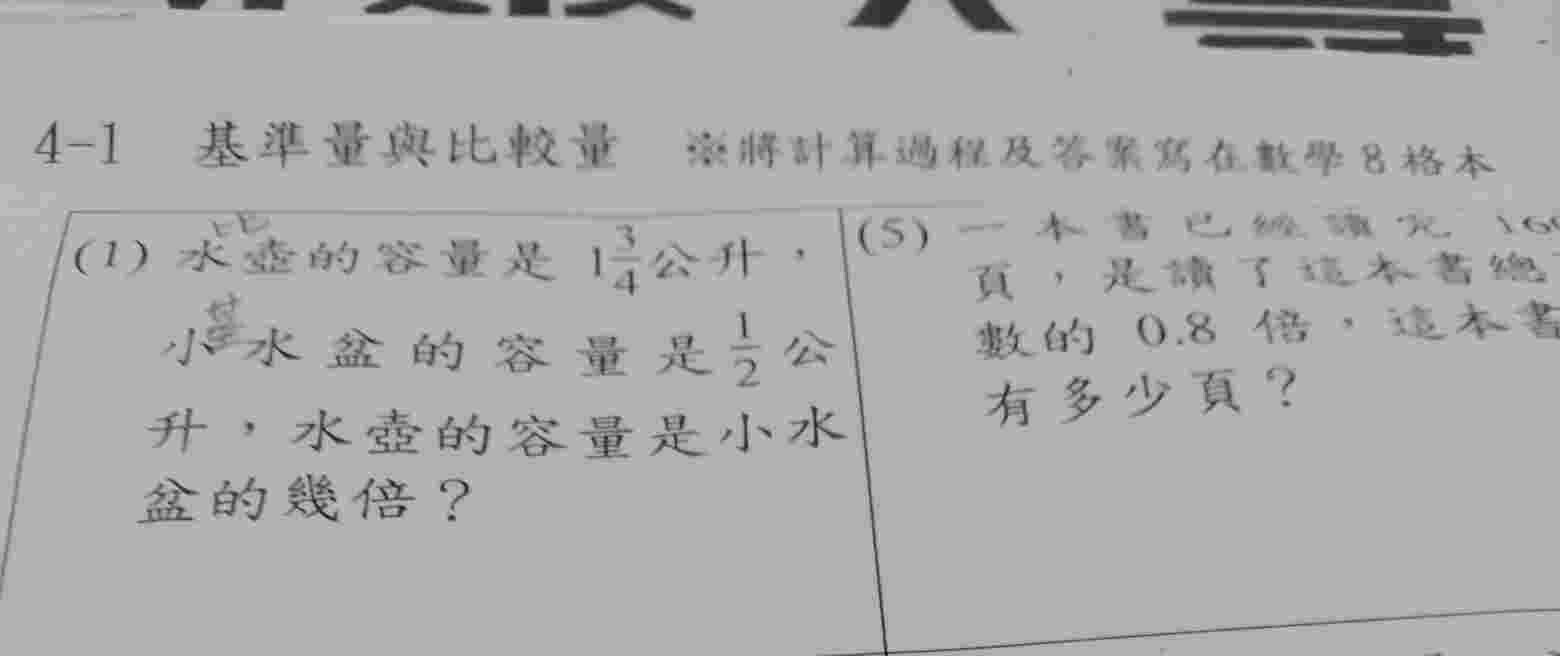 4-1 基準量與比較量 ※將計算過程及答案寫在數學8格本
比
(1) 水壺的容量是 1 3/4 公升，
基
小水盆的容量是 1/2 公
升，水壺的容量是小水
盆的幾倍？
(5) 一本書已經讀完
頁，是讀了這本書總
數的 0.8 倍，這本書
有多少頁？